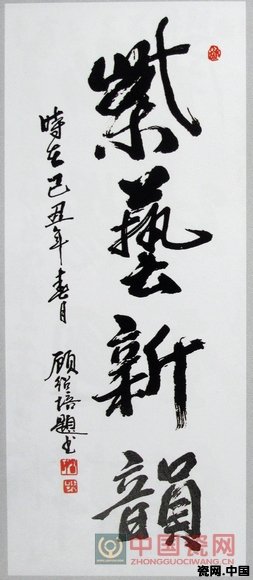 紫藝新韻
時在己丑年春月
顧紹培題书
中国瓷网
ZHONGGUOCIWANG.COM
瓷网.中国